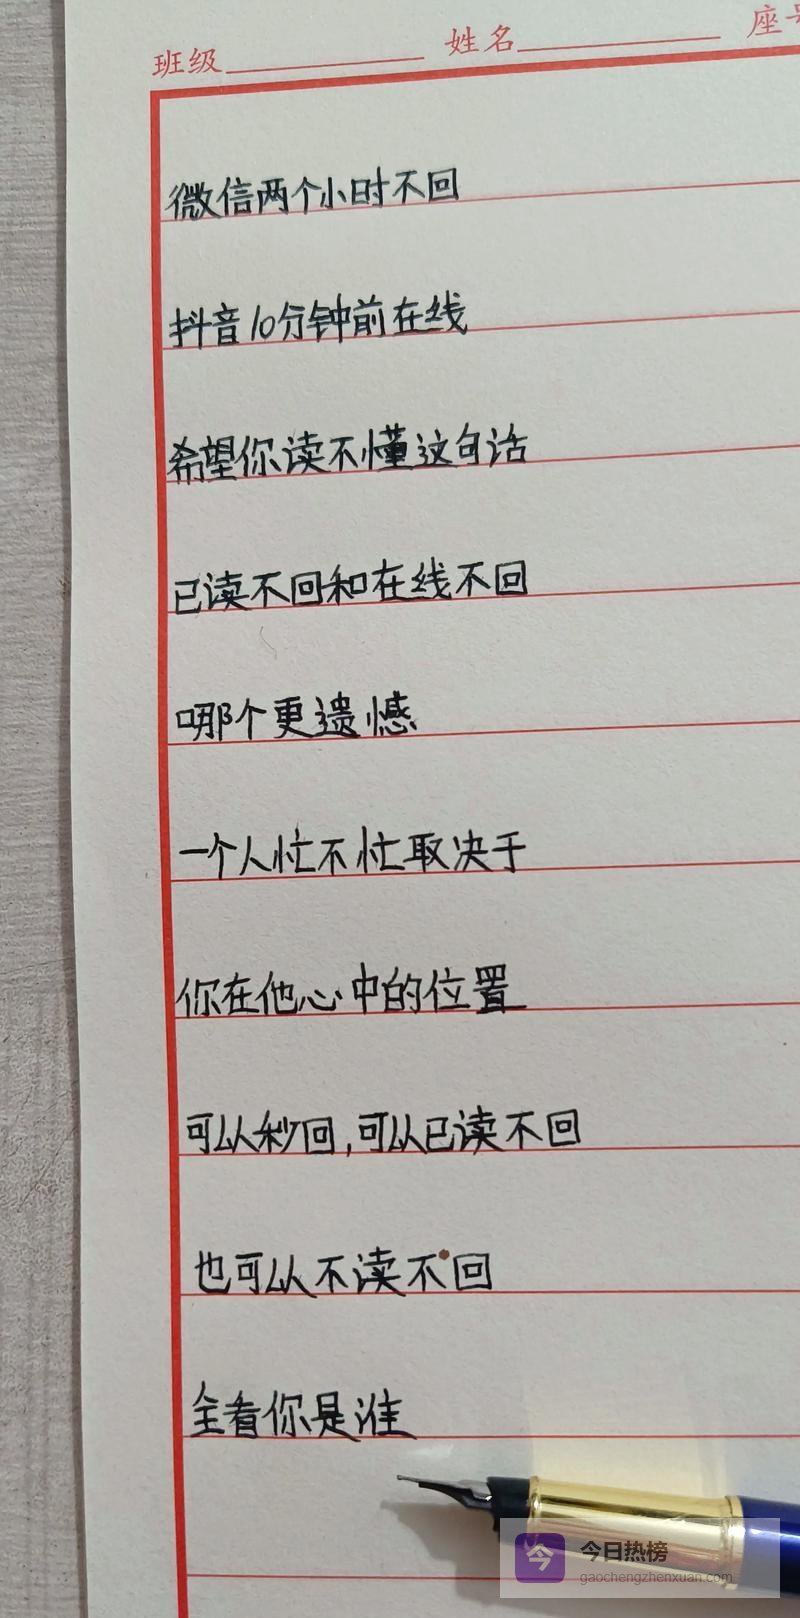 班级 姓名 座号
微信两个小时不回
抖音10分钟前在线
希望你读不懂这句话
已读不回和在线不回
哪个更遗憾
一个人忙不忙取决于
你在他心中的位置
可以秒回,可以已读不回
也可以不读不回
全看你是谁
今 今日热榜
gaochengzhenxuan.com